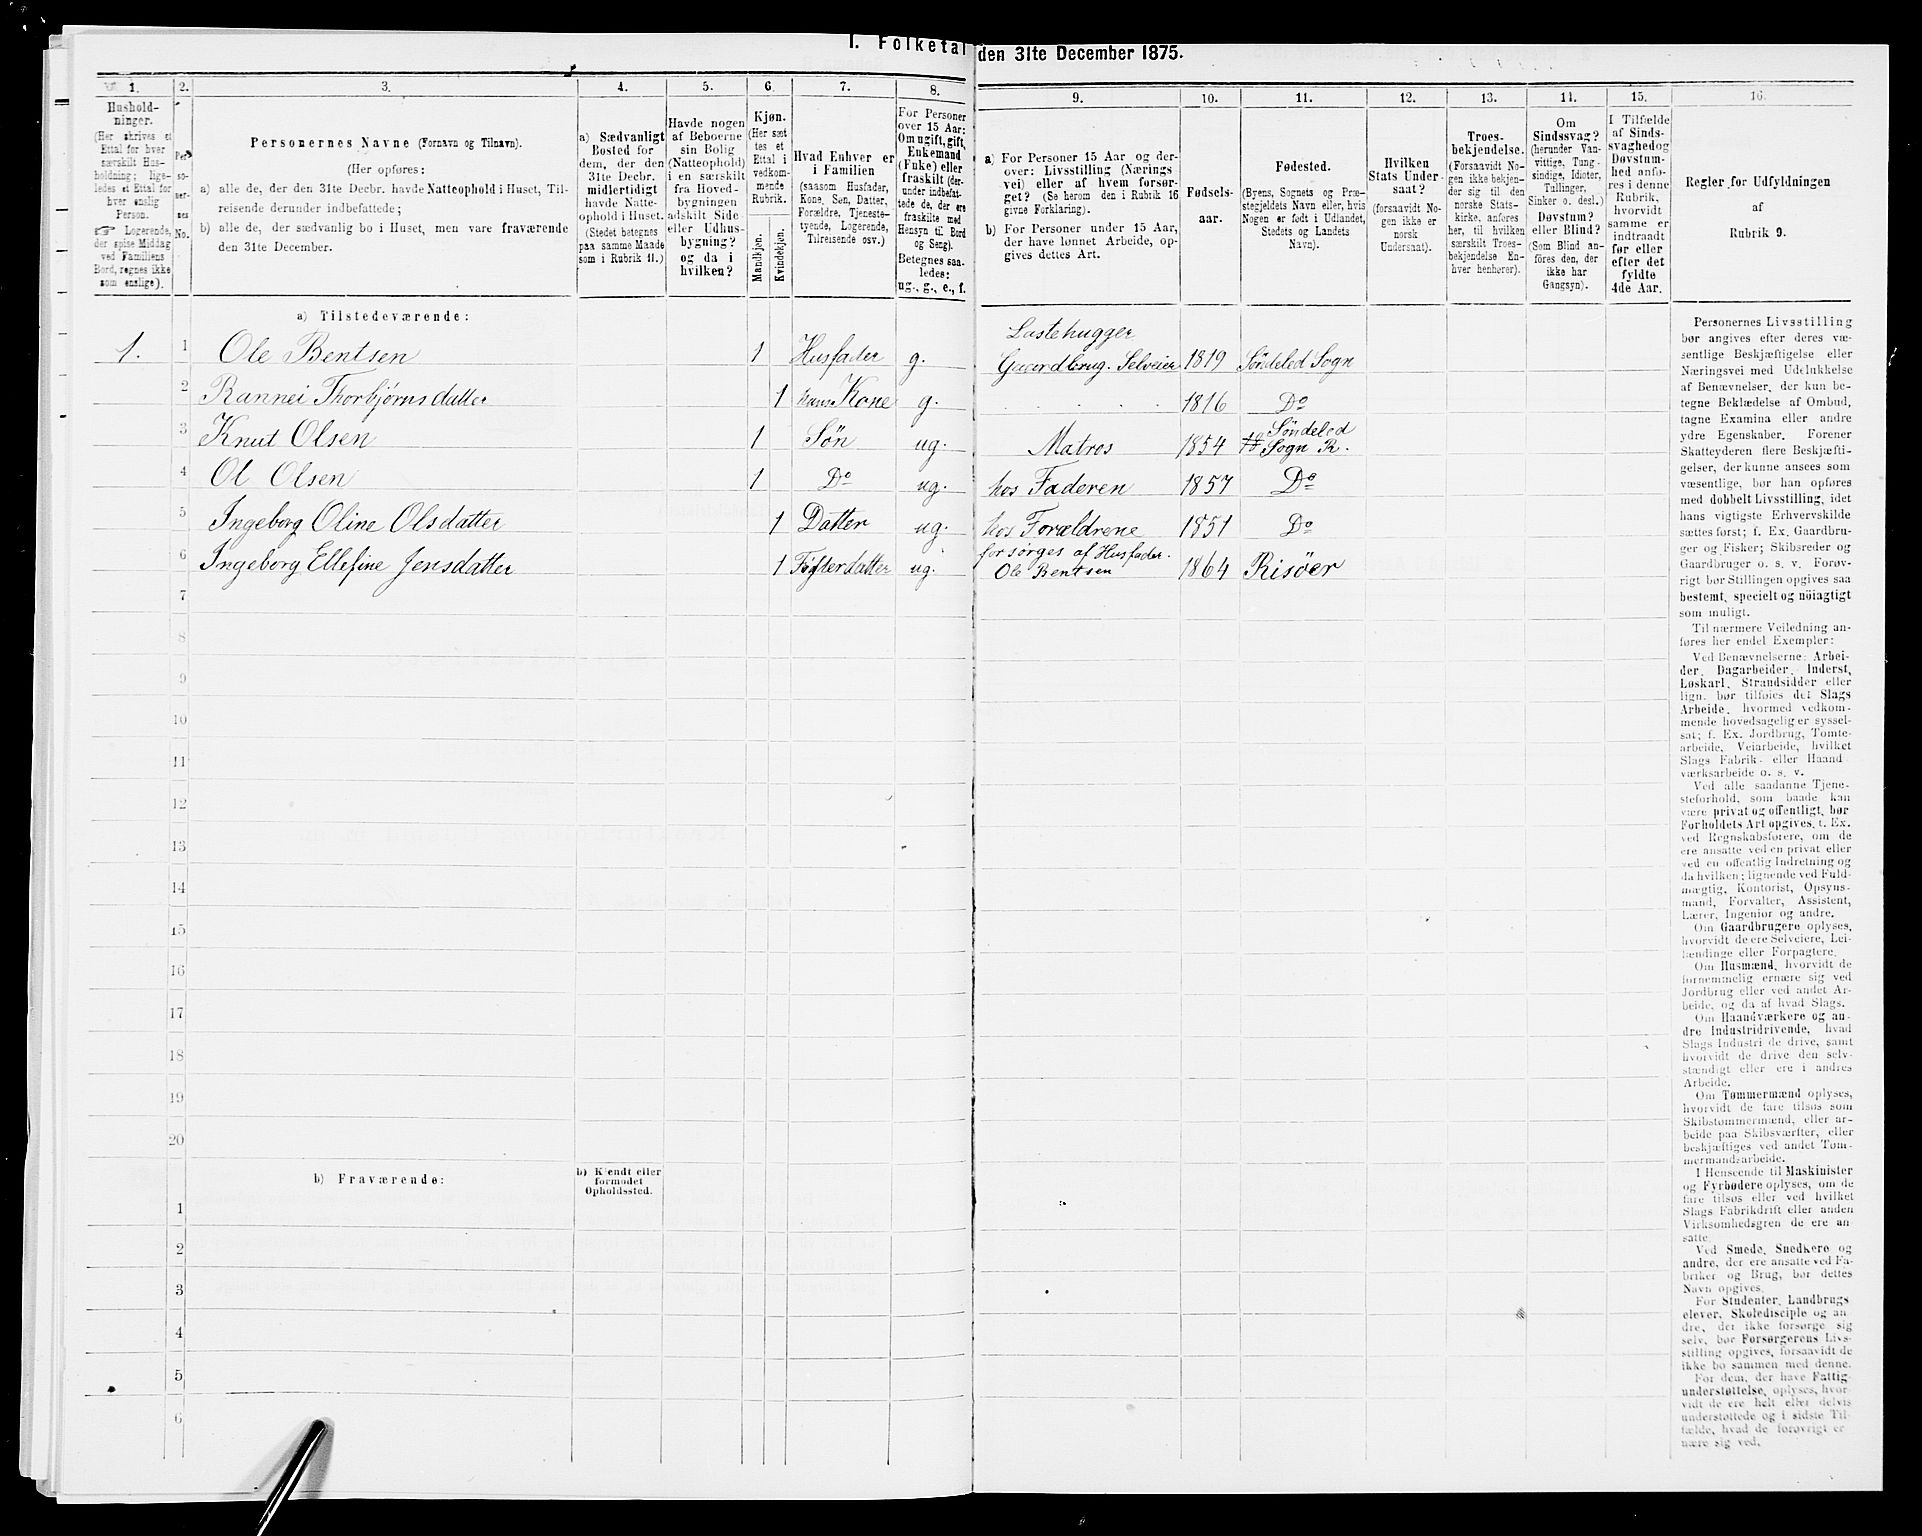 I. Folketal den 31te December 1875.
1. 2. 3. 4. 5. 6. 7. 8. 9. 10. 11. 12. 13. 14. 15. 16.
Hushold-
ninger.
(Her skrives et
Ettal for hver
særskilt Hus-
holdning; lige-
ledes et Ettal for
hver enslig
Person.
☞ Logerende,
der spise Middag
ved Familiens
Bord, regnes ikke
som enslige).
Per-
so-
ner-
nes
No.
Personernes Navne (Fornavn og Tilnavn).
(Her opføres:
a) alle de, der den 31te Decbr. havde Natteophold i Huset, Til-
reisende derunder indbefattede;
b) alle de, der sædvanlig bo i Huset, men vare fraværende
den 31te December.
a) Sædvanligt
Bosted for
dem, der den
31te Decbr.
midlertidigt
havde Natte-
ophold i Huset.
(Stedet betegnes
paa samme Maade
som i Rubrik 11.)
Havde nogen
af Beboerne
sin Bolig
(Natteophold)
i en særskilt
fra Hoved-
bygningen
adskilt Side-
eller Udhus-
bygning?
og da i
hvilken?
Kjøn.
(Her sæt-
tes et
Ettal i
vedkom-
mende
Rubrik.
Mandkjøn.
Kvindekjøn.
Hvad Enhver er
i Familien
(saasom Husfader,
Kone, Søn, Datter,
Forældre, Tjeneste-
tyende, Logerende,
Tilreisende osv.)
For Personer
over 15 Aar:
Om ugift, gift,
Enkemand
(Enke) eller
fraskilt (der-
under indbefat-
tede de, der ere
fraskilte med
Hensyn til Bord
og Seng).
Betegnes saa-
ledes:
ug., g., e., f.
a) For Personer 15 Aar og der-
over: Livsstilling (Nærings-
vei) eller af hvem forsør-
get? (Se herom den i Rubrik 16
givne Forklaring).
b) For Personer under 15 Aar,
der have lønnet Arbeide, op-
gives dettes Art.
Fødsels-
aar.
Fødested.
(Byens, Sognets og Præ-
stegjeldets Navn eller, hvis
Nogen er født i Udlandet,
Stedets og Landets
Navn).
Hvilken
Stats Under-
saat?
(forsaavidt No-
gen ikke er
norsk
Undersaat).
Troes-
bekjendelse.
(Forsaavidt No-
gen ikke bekjen-
der sig til den
norske Stats-
kirke, anføres
her, til hvilken
særskilt Troes-
bekjendelse En-
hver henhører).
Om
Sindssvag?
(herunder Van-
vittige, Tung-
sindige, Idioter,
Tullinger,
Sinker o. desl.)
Døvstum?
eller Blind?
(Som Blind an-
føres den, der
ikke har
Gangsyn).
I Tilfælde
af Sinds-
svaghed og
Døvstum-
hed anfø-
res i denne
Rubrik,
hvorvidt
samme er
indtraadt
før eller
efter det
fyldte
4de Aar.
Regler for Udfyldningen
af
Rubrik 9.
a) Tilstedeværende:
Lastehugger
1. 1 Ole Bentsen 1 Husfader g. Gaardbrug. Selveier 1819 Søndeled Sogn
2 Rannei Thorbjørnsdatter 1 hans Kone g. 1816 Do
3 Knut Olsen 1 Søn ug. Matros 1854 Søndeled Sogn R.
4 Ol Olsen 1 Do ug. hos Faderen 1857 Do
5 Ingeborg Oline Olsdatter 1 Datter ug. hos Forældrene 1851 Do
forsørges af Husfader.
6 Ingeborg Ellefine Jensdatter 1 ug. Ole Bentsen 1864 Risöer
7
8
9
10
11
12
13
14
15
16
17
18
19
20
b) Fraværende:
b) Kjendt eller
formodet
Opholdssted.
1
2
3
4
5
6
Personernes Livsstilling
bør angives efter deres væ-
sentlige Beskjæftigelse eller
Næringsvei med Udelukkelse
af Benævnelser, der kun be-
tegne Beklædelse af Ombud,
tagne Examina eller andre
ydre Egenskaber. Forener
Skatteyderen flere Beskjæfti-
gelser, der kunne ansees som
væsentlige, bør han opføres
med dobbelt Livsstilling, idet
hans vigtigste Erhvervskilde
sættes først; f. Ex. Gaardbru-
ger og Fisker; Skibsreder og
Gaardbruger o. s. v. Forøv-
rigt bør Stillingen opgives saa
bestemt, specielt og nöiagtigt
som muligt.
Til nærmere Veiledning an-
føres her endel Exempler:
Ved Benævnelserne: Arbei-
der, Dagarbeider, Inderst,
Løskarl, Strandsidder eller
lign. bør tilføies det Slags
Arbeide, hvormed vedkom-
mende hovedsagelig er syssel-
sat; f. Ex. Jordbrug, Tomte-
arbeide, Veiarbeide, hvilket
Slags Fabrik- eller Haand-
værksarbeide o. s. v.
Ved alle saadanne Tjene-
steforhold, som baade kan
være privat og offentligt, bør
Forholdets Art opgives, t. Ex.
ved Regnskabsførere, om de
ere ansatte ved en privat eller
ved en offentlig Indretning og
da hvilken; lignende ved Fuld-
mægtig, Kontorist, Opsyns-
mand, Forvalter, Assistent,
Lærer, Ingeniør og andre.
Om Gaardbrugere oplyses,
hvorvidt de ere Selveiere, Lei-
lændinge eller Forpagtere.
Om Husmænd, hvorvidt de
fornemmelig ernære sig ved
Jordbrug eller ved andet Ar-
beide, og da af hvad Slags.
Om Haandværkere og an-
dre Industridrivende, hvad
Slags Industri de drive, samt
hvorvidt de drive den selv-
stændigt eller ere i andres
Arbeide.
Om Tømmermænd oplyses,
hvorvidt de fare tilsøs som
Skibstømmermænd, eller ar-
beide paa Skibsværfter, eller
beskjæftiges ved andet Tøm-
mermandsarbeide.
I Henseende til Maskinister
og Fyrbødere oplyses, om de
fare tilsøs eller ved hvilket
Slags Fabrikdrift eller anden
Virksomhedsgren de ere an-
satte.
Ved Smede, Snedkere og
andre, der ere ansatte ved Fa-
briker og Brug, bør dettes
Navn opgives.
For Studenter, Landbrugs-
elever, Skoledisciple og an-
dre, der ikke forsørge sig
selv, bør Forsørgerens Livs-
stilling opgives, forsaavidt de
ikke bo sammen med denne.
For dem, der have Fattig-
understøttelse, oplyses, hvor-
vidt de ere helt eller delvis
understøttede og i sidste Til-
fælde, hvad de forøvrigt er-
nære sig ved.